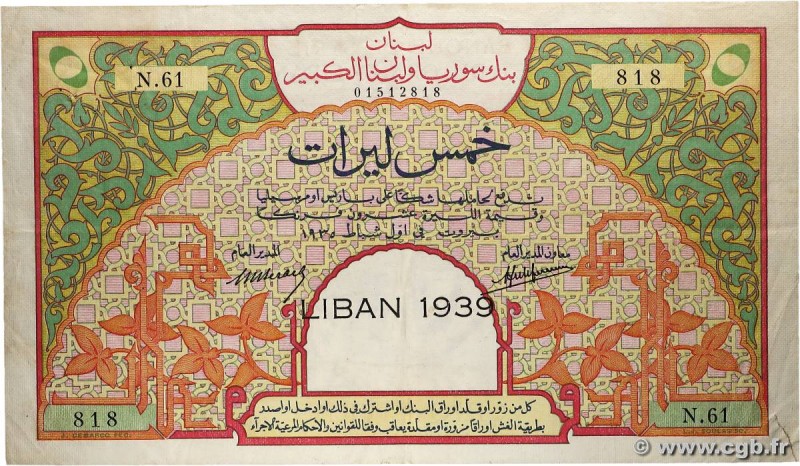 لبنان
بنك سوريا ولبنان الكبير
N.61
818
01512818
خمس ليرات
تدفع لحاملها شكًا على باريس او مرسيليا
وقيمة الليرة عشرون فرنكا
بيروت في اول شباط ١٩٣٥
المدير العام
معاون المدير العام
LIBAN 1939
كل من زور او قلد اوراق البنك او اشترك في ذلك او ادخل او اصدر
بطريقة الغش اوراقا مزورة او مقلدة يعاقب وفقا للقوانين والاحكام المرعية الاجراء
818
N.61
© www.cgb.fr